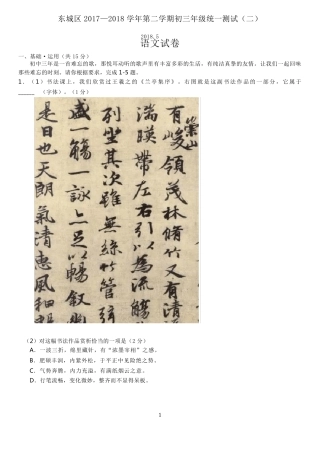 东城区 2017—2018 学年第二学期初三年级统一测试（二）
2018.5
语文试卷
一、基础·运用（共 15 分）
初中三年是一首难忘的歌，那悦耳动听的歌声里有丰富多彩的生活，有纯洁真挚的友情，让我们一起回味那些难忘的时刻，请根据你的回忆，完成 1-5 题。
1．（1）书法课上，我们欣赏过王羲之的《兰亭集序》。图片上的书法作品，从字体上看属于
______（1 分）
崇山
有峻領茂林脩竹又有清
湍暎帶左右引以為流觴
列坐其次雖無絲竹管
盛一觴一詠亦足以暢敘
是日也天朗氣清惠風
（2）对这幅书法作品赏析恰当的一项是（2 分）
A．一波三折，绵里藏针，有“浓墨丰相”之感。
B．肥硕丰润，内紧外松，有雍容大度之风。
C．气势奔腾，内力充溢，有满纸烟云之感。
D．行笔流畅，变化微妙，整齐而不显得呆板。
1